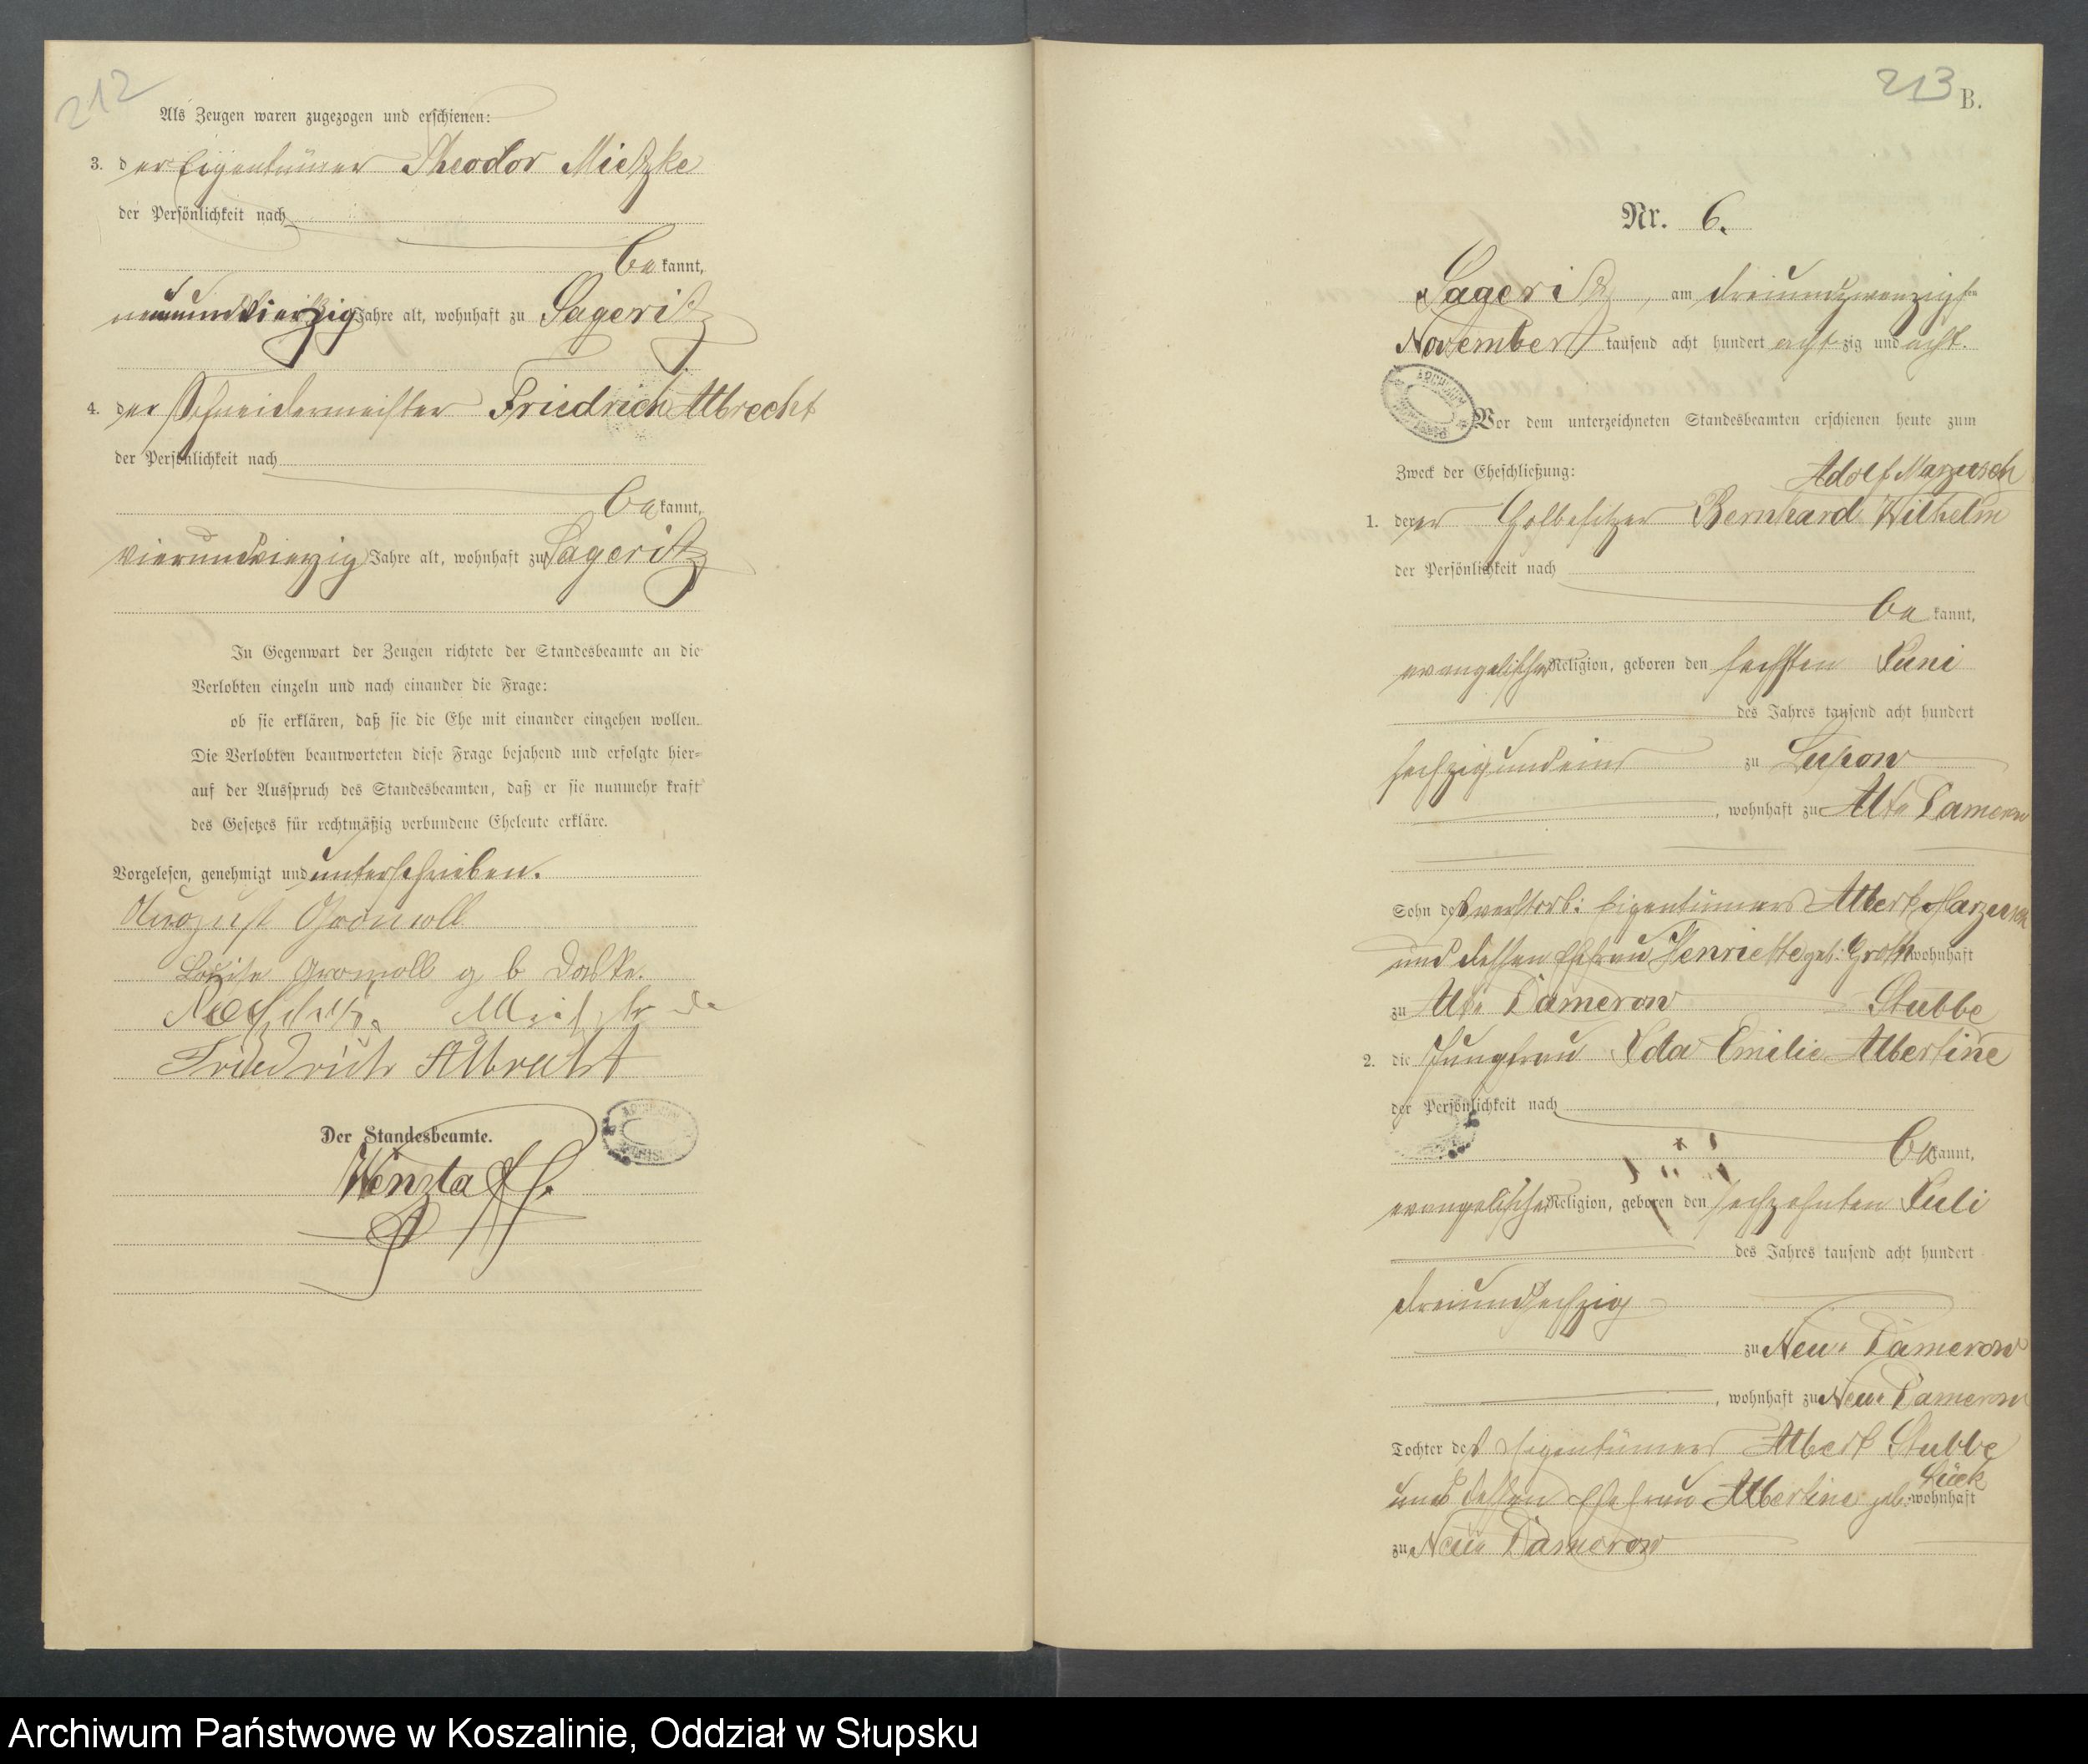 212
Als Zeugen waren zugezogen und erschienen:
3. der Eigentümer Theodor Mietzke
der Persönlichkeit nach
bekannt,
neunundvierzig Jahre alt, wohnhaft zu Sageritz
4. der Schneidermeister Friedrich Albrecht
der Persönlichkeit nach
bekannt,
vierundvierzig Jahre alt, wohnhaft zu Sageritz
In Gegenwart der Zeugen richtete der Standesbeamte an die
Verlobten einzeln und nach einander die Frage:
ob sie erklären, daß sie die Ehe mit einander eingehen wollen.
Die Verlobten beantworteten diese Frage bejahend und erfolgte hier-
auf der Ausspruch des Standesbeamten, daß er sie nunmehr kraft
des Gesetzes für rechtmäßig verbundene Eheleute erkläre.
Vorgelesen, genehmigt und unterschrieben.
August Gromoll
Louise Gromoll g b
Friedrich Albrecht
Der Standesbeamte.
213
B.
Nr. 6.
Sageritz, am dreiundzwanzigsten
November tausend acht hundert achtzig und acht.
Vor dem unterzeichneten Standesbeamten erschienen heute zum
Zweck der Eheschließung:
Adolf Marzusch
1. der Bernhard Wilhelm
der Persönlichkeit nach
bekannt,
evangelischer Religion, geboren den sechsten Juni
des Jahres tausend acht hundert
sechzig und eins zu Lupow
, wohnhaft zu Alt Damerow
Sohn des verstorb: Eigentümers Albert Marzusch
und dessen Ehefrau Henriette geb: Groth wohnhaft
zu Alt Damerow
Stubbe
2. die Jungfrau Ida Emilie Albertine
der Persönlichkeit nach
bekannt,
evangelischer Religion, geboren den sechzehnten Juli
des Jahres tausend acht hundert
dreiundsechzig
zu Neu Damerow
, wohnhaft zu Neu Damerow
Tochter des Eigentümers Albert Stubbe
und dessen Ehefrau Albertine geb: Lück wohnhaft
zu Neu Damerow
Archiwum Państwowe w Koszalinie, Oddział w Słupsku